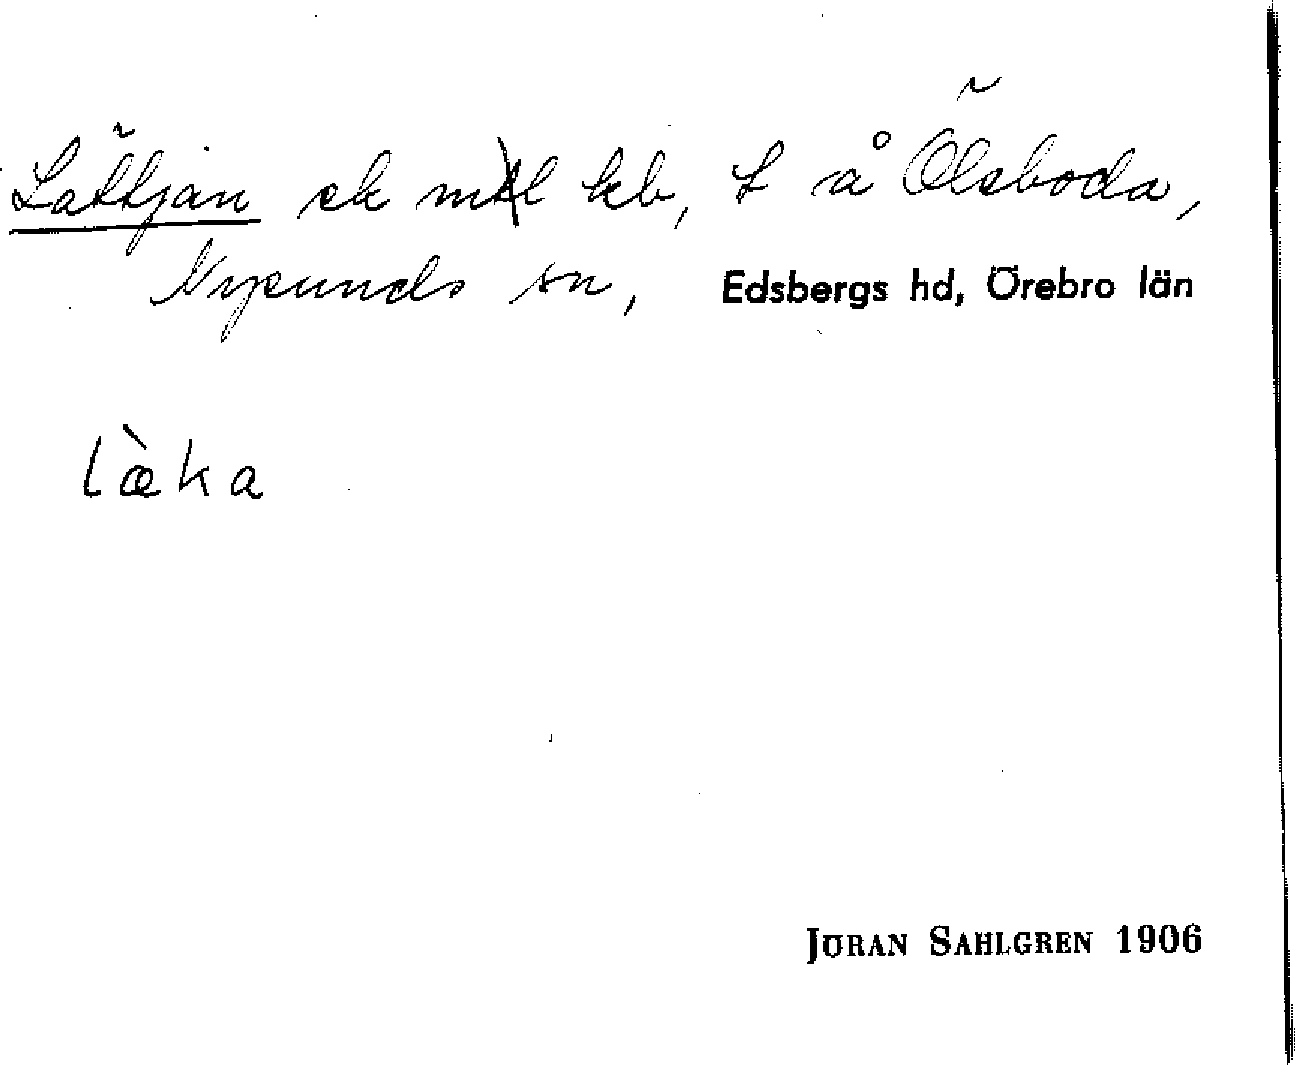 Lättjan ek mtl kb, t å Ölsboda,
Nysunds sn, Edsbergs hd, Örebro län
læ̀ka
JÖRAN SAHLGREN 1906